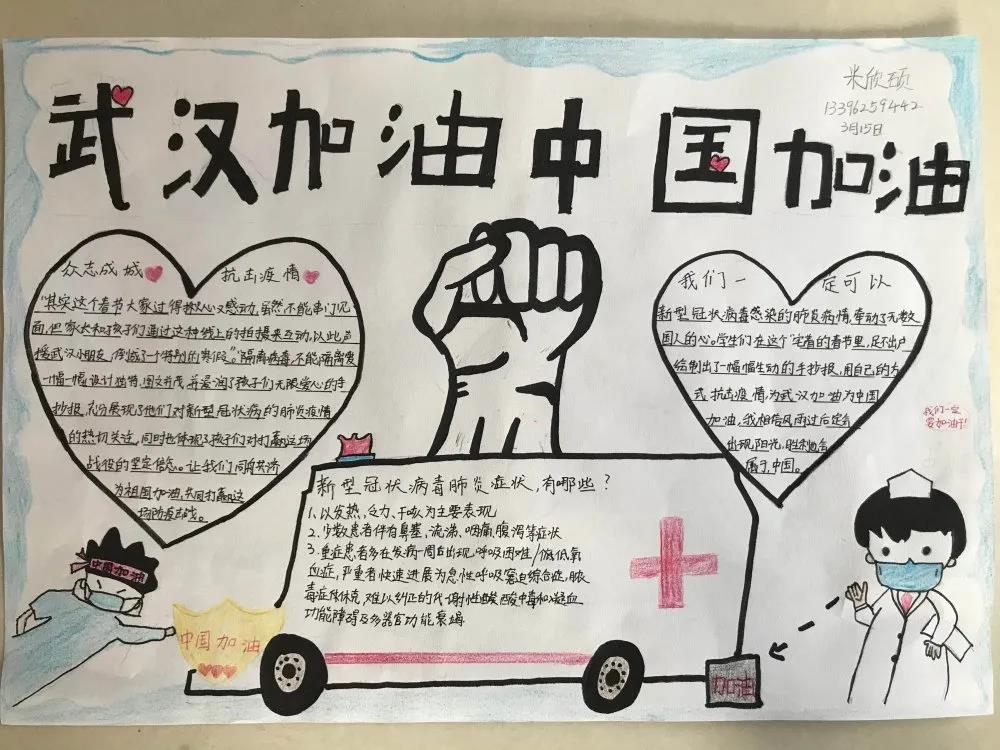 武汉加油中国加油
米欣颐
13396259442
3月15日
众志成城 抗击疫情
"其实这个春节大家过得揪心又感动,虽然不能串门见
面,但家长和孩子们通过这种线上的拍摄来互动,以此声
援武汉小朋友,度成了一个特别的寒假。"隔离病毒,不能隔离爱
一幅一幅设计独特,图文并茂并浸润了孩子们无限爱心的手
抄报,充分展现了他们对新型冠状病的肺炎疫情
的热切关注,同时也体现了孩子们对打赢这场
战役的坚定信念。让我们同舟共济
为祖国加油,共同打赢这
场防疫击战。
我们一定可以
新型冠状病毒感染的肺炎病情,牵动了无数
国人的心。学生们在这个"宅着的春节里,足不出户
绘制出了一幅幅生动的手抄报,用自己的方
式抗击疫情为武汉加油为中国
加油,我相信风雨过后定会
出现阳光,胜利也会
属于中国。
我们一定
要加油干!
新型冠状病毒肺炎症状,有哪些?
1、以发热、乏力、干咳为主要表现
2、少数患者伴有鼻塞,流涕,咽痛,腹泻等症状
3、重症患者多在发病一周后出现,呼吸困难/低低氧
血症,严重者快速进展为急性呼吸窘迫综合症,脓
毒症休克,难以纠正的代谢性酸酸中毒和凝血
功能障碍及多器官功能衰竭
中国加油
中国加油
加油